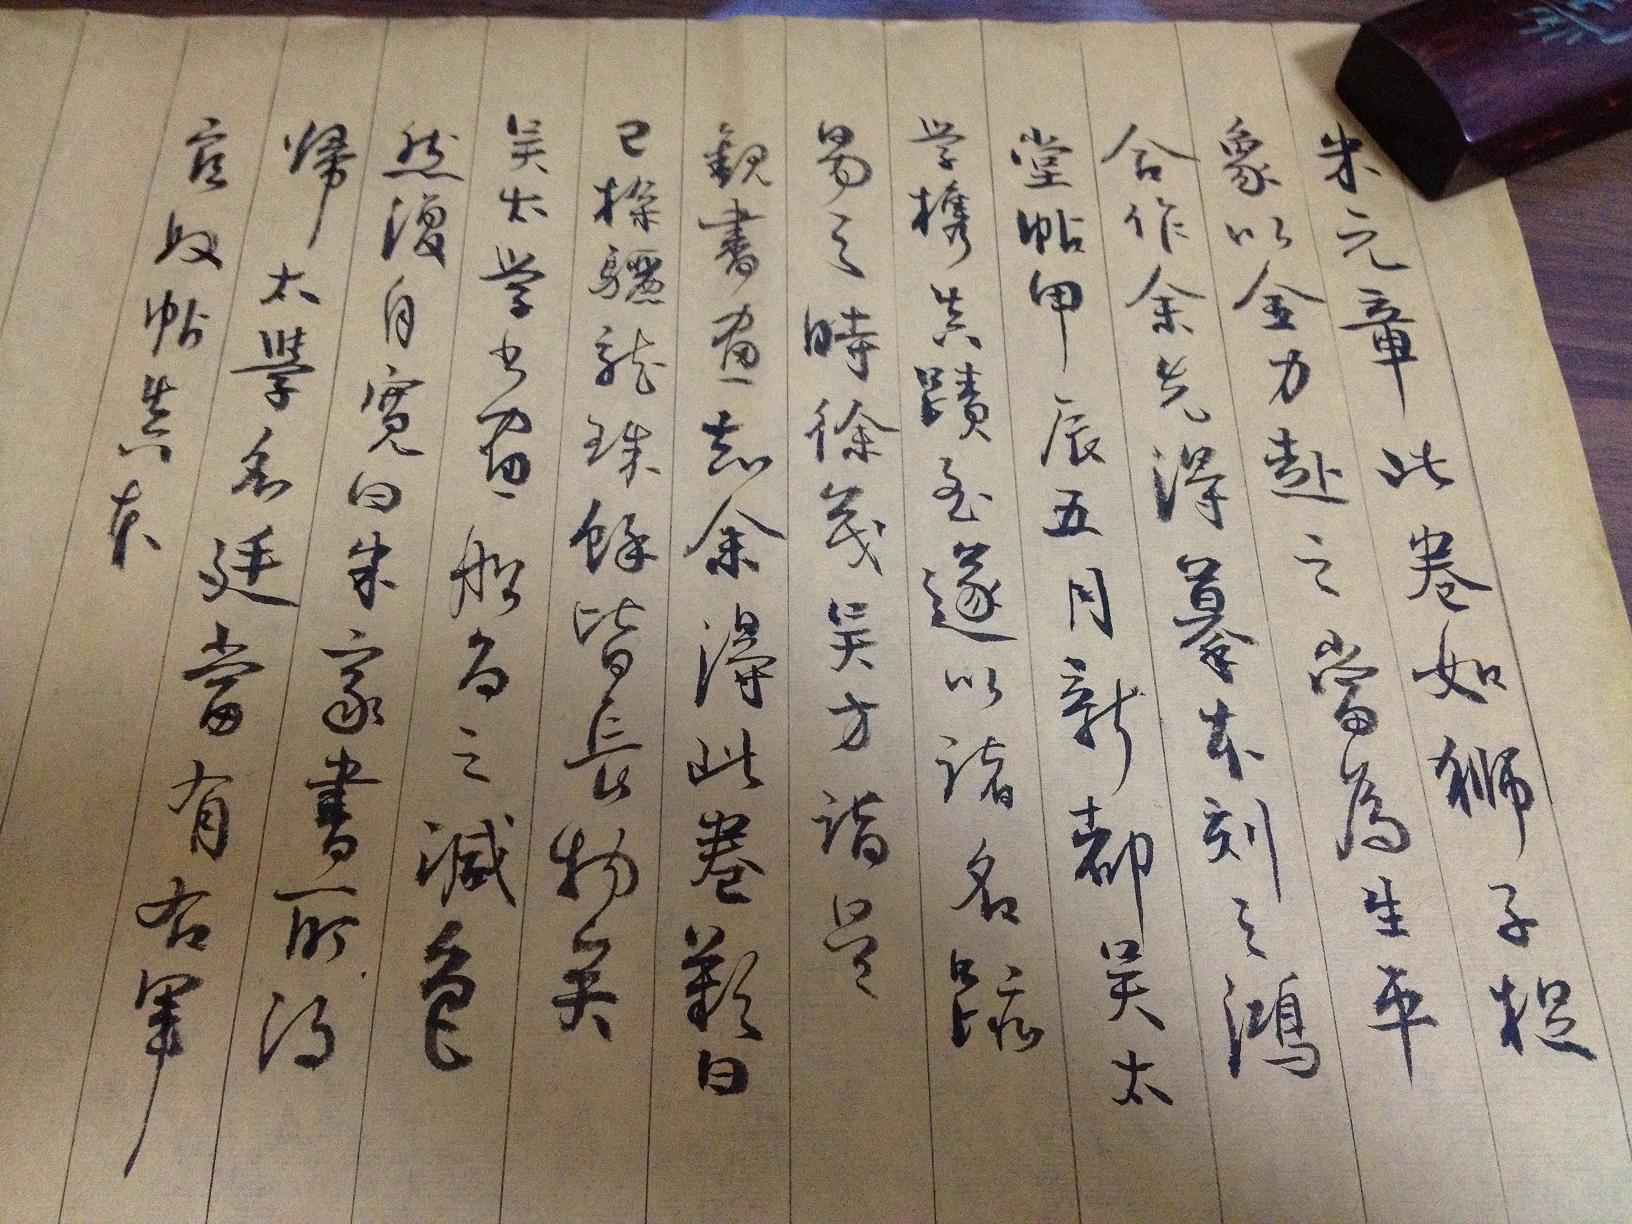 朱元章此卷如狮子捉
象以全力赴之当为生平
合作余先得摹本刻之鸿
堂帖甲辰五月新都吴太
学携真蹟至遂以诸名蹟
易之时徐茂吴方诣吴
观书画知余得此卷叹曰
已探骊龙珠余皆长物矣
吴太学书画船为之减色
然复自宽曰米家书所得
归太学名廷当有右军
官奴帖真本